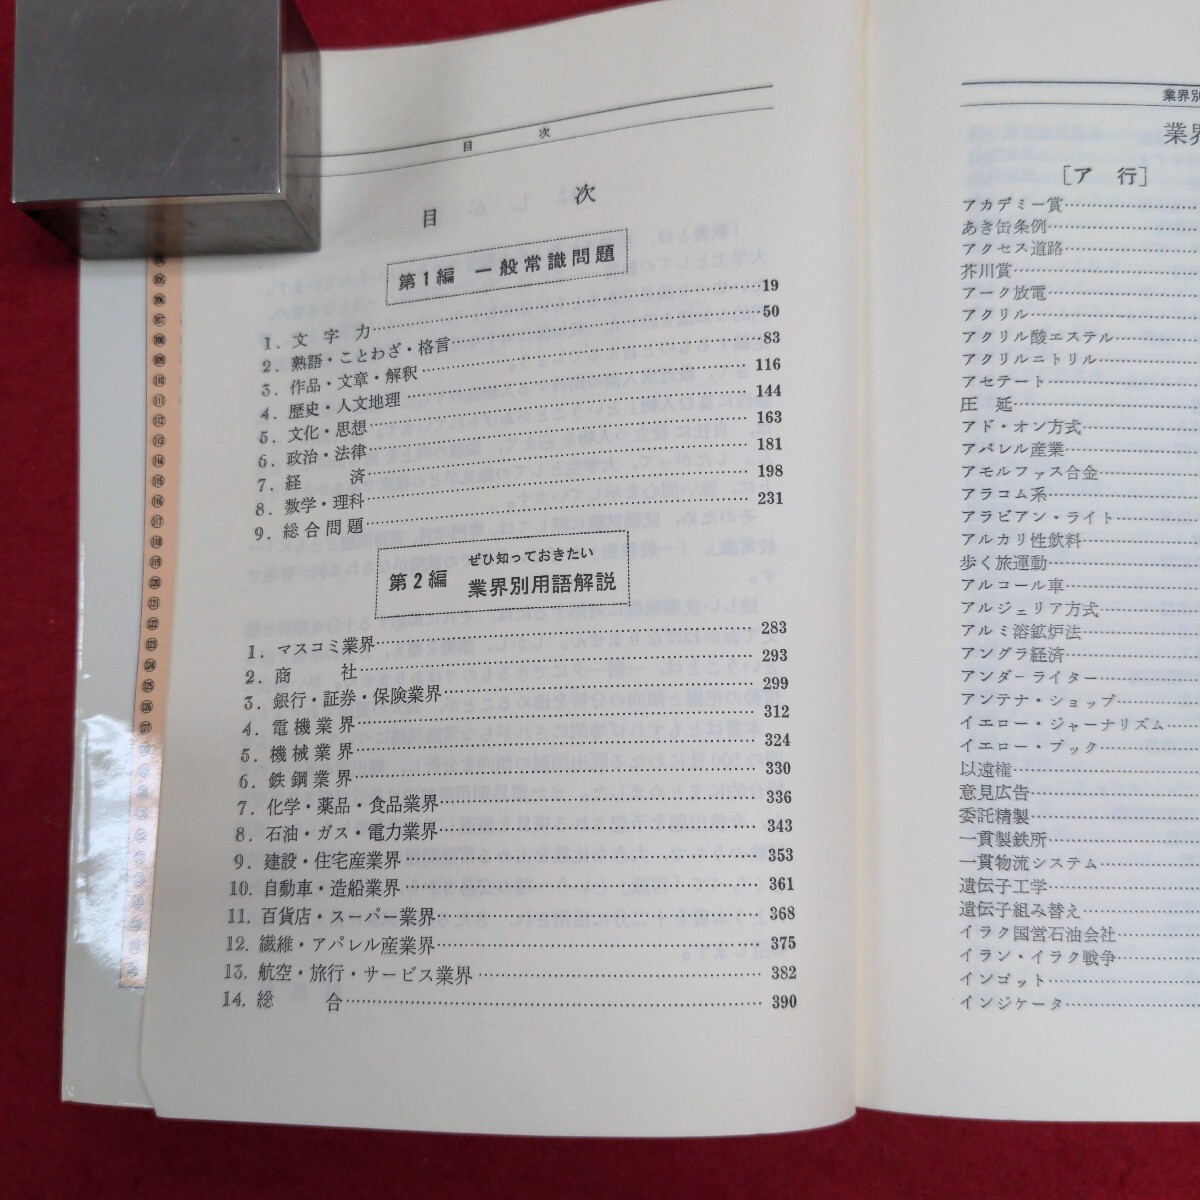 目 次
目 次
第1編 一般常識問題
1. 文字力…19
2. 熟語・ことわざ・格言…50
3. 作品・文章・解釈…83
4. 歴史・人文地理…116
5. 文化・思想…144
6. 政治・法律…163
7. 経 済…181
8. 数学・理科…198
9. 総合問題…231
第2編 ぜひ知っておきたい
業界別用語解説
1. マスコミ業界…283
2. 商 社…293
3. 銀行・証券・保険業界…299
4. 電機業界…312
5. 機械業界…324
6. 鉄鋼業界…330
7. 化学・薬品・食品業界…336
8. 石油・ガス・電力業界…343
9. 建設・住宅産業界…353
10. 自動車・造船業界…361
11. 百貨店・スーパー業界…368
12. 繊維・アパレル産業界…375
13. 航空・旅行・サービス業界…382
14. 総 合…390
業界別
業界
[ア 行]
アカデミー賞…
あき缶条例…
アクセス道路…
芥川賞…
アーク放電…
アクリル…
アクリル酸エステル…
アクリルニトリル…
アセテート…
圧 延…
アド・オン方式…
アパレル産業…
アモルファス合金…
アラコム系…
アラビアン・ライト…
アルカリ性飲料…
歩く旅運動…
アルコール車…
アルジェリア方式…
アルミ溶鉱炉法…
アングラ経済…
アンダーライター…
アンテナ・ショップ…
イエロー・ジャーナリズム…
イエロー・ブック…
以遠権…
意見広告…
委託精製…
一貫製鉄所…
一貫物流システム…
遺伝子工学…
遺伝子組み替え…
イラク国営石油会社…
イラン・イラク戦争…
インゴット…
インジケータ…